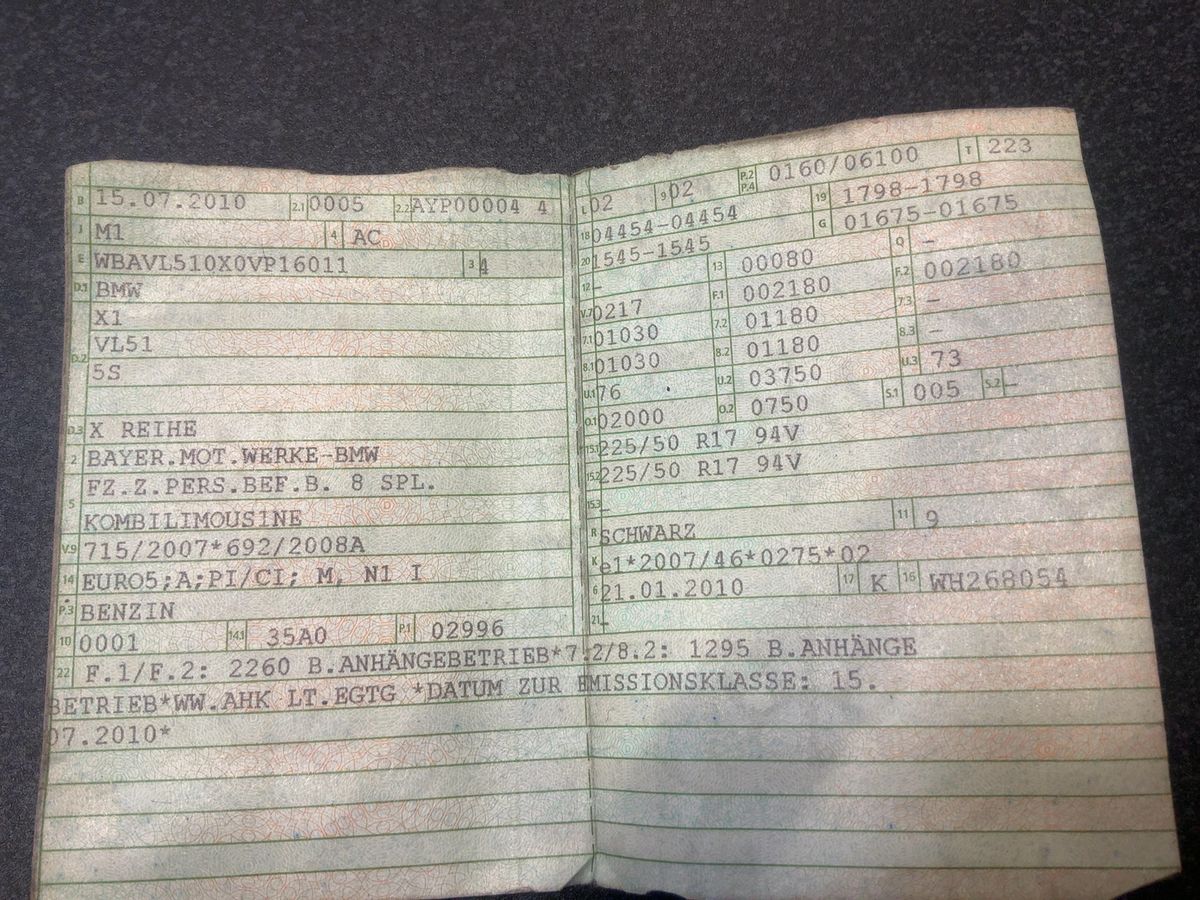 B 15.07.2010 2.1 0005 2.2 AYP00004 4
J M1 4 AC
E WBAVL510X0VP16011 3 4
D.1 BMW
X1
D.2 VL51
5S
D.3 X REIHE
2 BAYER.MOT.WERKE-BMW
5 FZ.Z.PERS.BEF.B. 8 SPL.
KOMBILIMOUSINE
V.9 715/2007*692/2008A
14 EURO5;A;PI/CI; M, N1 I
P.3 BENZIN
10 0001 14.1 35A0 P.1 02996
L 02 9 02 P.2 P.4 0160/06100 T 223
18 04454-04454 19 1798-1798
20 1545-1545 G 01675-01675
12 – 13 00080 Q –
V.7 0217 F.1 002180 F.2 002180
7.1 01030 7.2 01180 7.3 –
8.1 01030 8.2 01180 8.3 –
U.1 76 U.2 03750 U.3 73
O.1 02000 O.2 0750 S.1 005 S.2 –
15.1 225/50 R17 94V
15.2 225/50 R17 94V
15.3 –
R SCHWARZ 11 9
K e1*2007/46*0275*02
6 21.01.2010 17 K 16 WH268054
21 –
22 F.1/F.2: 2260 B.ANHÄNGEBETRIEB*7.2/8.2: 1295 B.ANHÄNGE
BETRIEB*WW.AHK LT.EGTG *DATUM ZUR EMISSIONSKLASSE: 15.
07.2010*